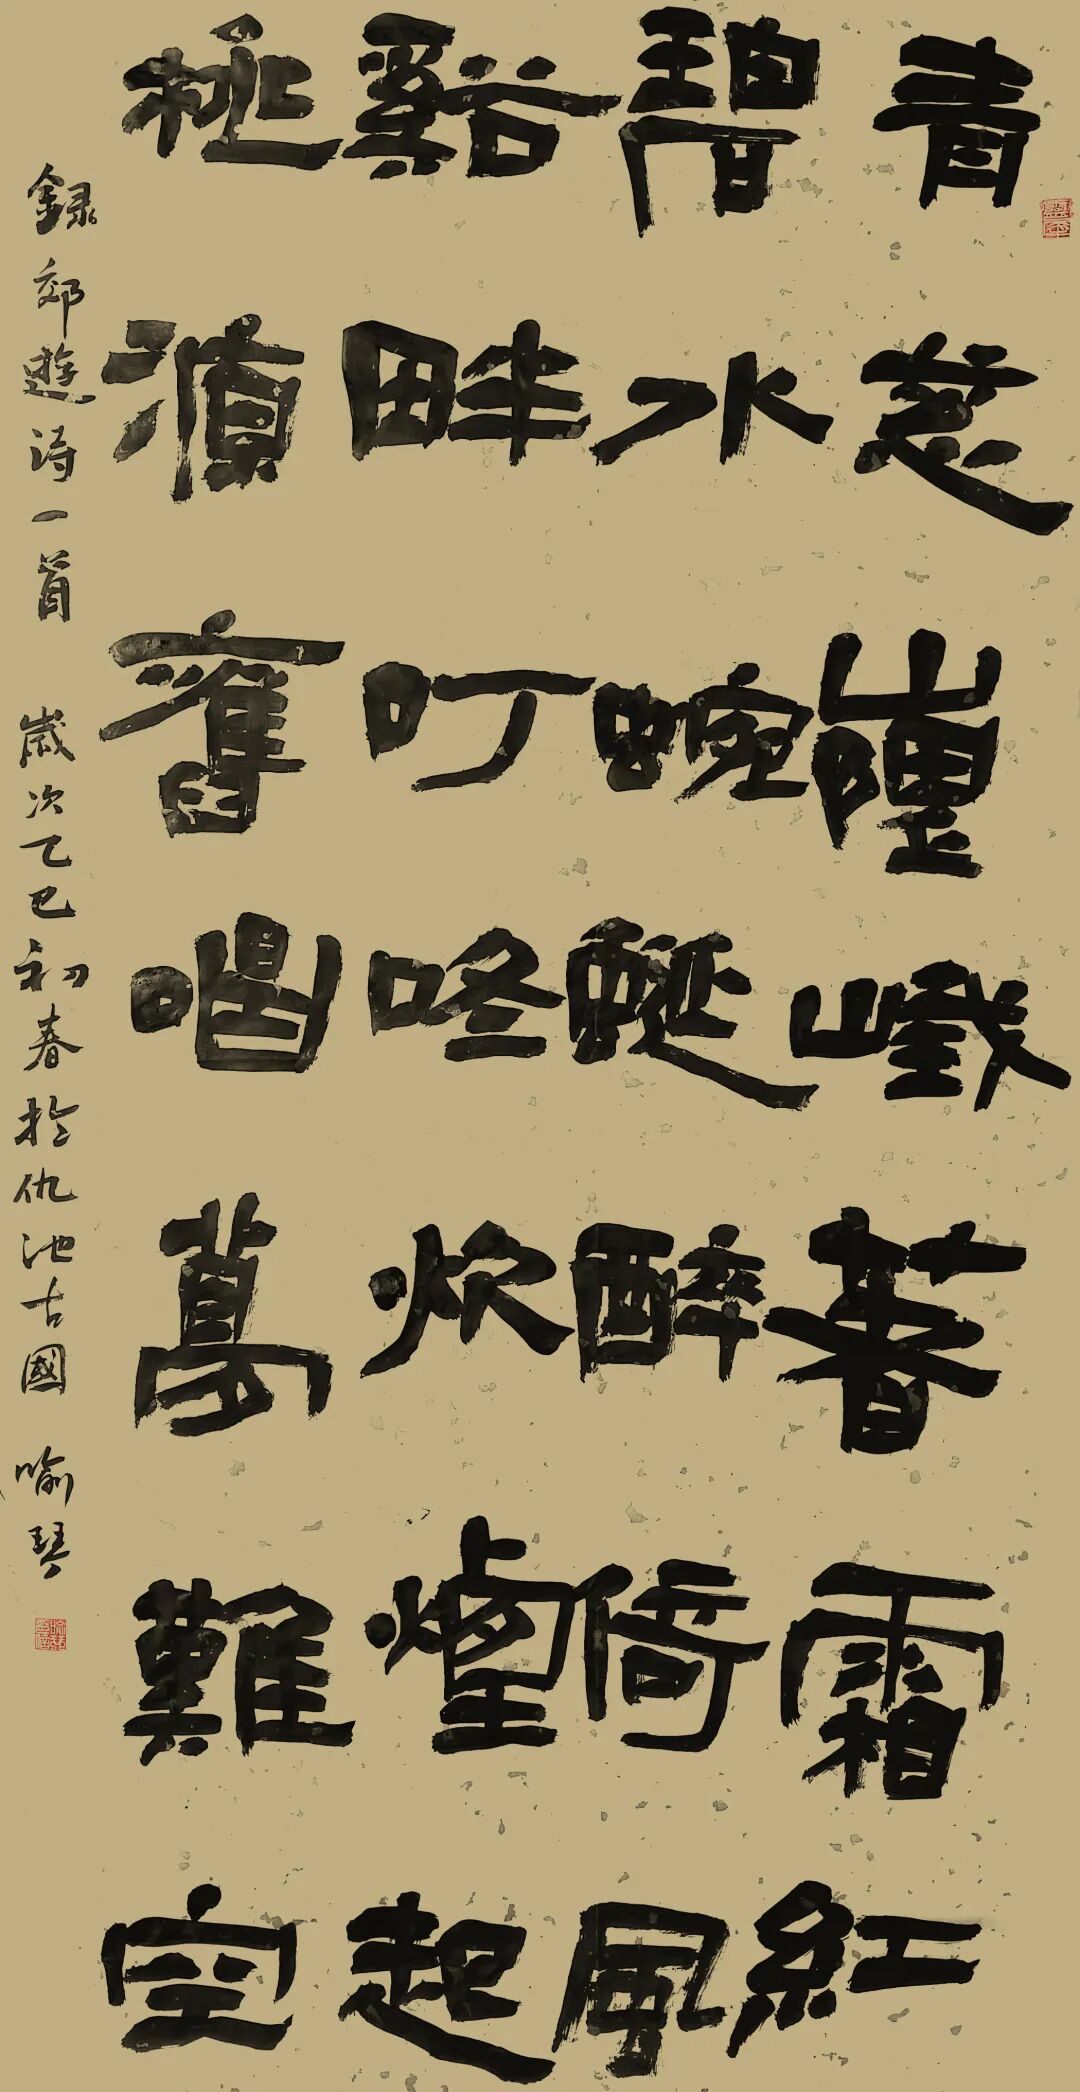 青葱峨著霜紅
碧水蜿蜒醉倚風
谿畔叮咚炊爐起
桃源舊唱萬難空
錄郊遊詩一首 歲次乙巳初春於仇池古國 喻琴